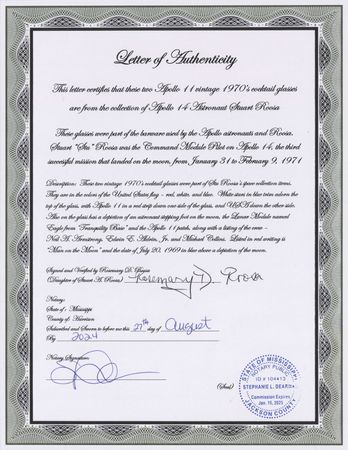 Letter of Authenticity
This letter certifies that these two Apollo 11 vintage 1970's cocktail glasses
are from the collection of Apollo 14 Astronaut Stuart Roosa
These glasses were part of the barware used by the Apollo astronauts and Roosa.
Stuart "Stu" Roosa was the Command Module Pilot on Apollo 14, the third
successful mission that landed on the moon, from January 31 to February 9, 1971
Description: These two vintage 1970's cocktail glasses were part of Stu Roosa's space collection items.
They are in the colors of the United States flag – red, white, and blue. White stars in blue trim adorn the
top of the glass, with Apollo 11 in a red strip down one side of the glass, and USA down the other side.
Also on the glass has a depiction of an astronaut stepping foot on the moon, the Lunar Module named
Eagle from "Tranquility Base" and the Apollo 11 patch, along with a listing of the crew –
Neil A. Armstrong, Edwin E. Aldrin, Jr. and Michael Collins. Listed in red writing is
"Man on the Moon" and the date of July 20, 1969 in blue above a depiction of the moon.
Signed and Verified by Rosemary D. Roosa
(Daughter of Stuart A. Roosa) Rosemary D. Roosa
Notary:
State of: Mississippi
County of: Harrison
Subscribed and Sworn to before me this 27th day of August
By 2024
Notary Signature:
(Seal)
STATE OF MISSISSIPPI
NOTARY PUBLIC
ID # 104413
STEPHANIE L. DEARI
Commission Expires
Jan. 15, 2025
JACKSON COUNTY